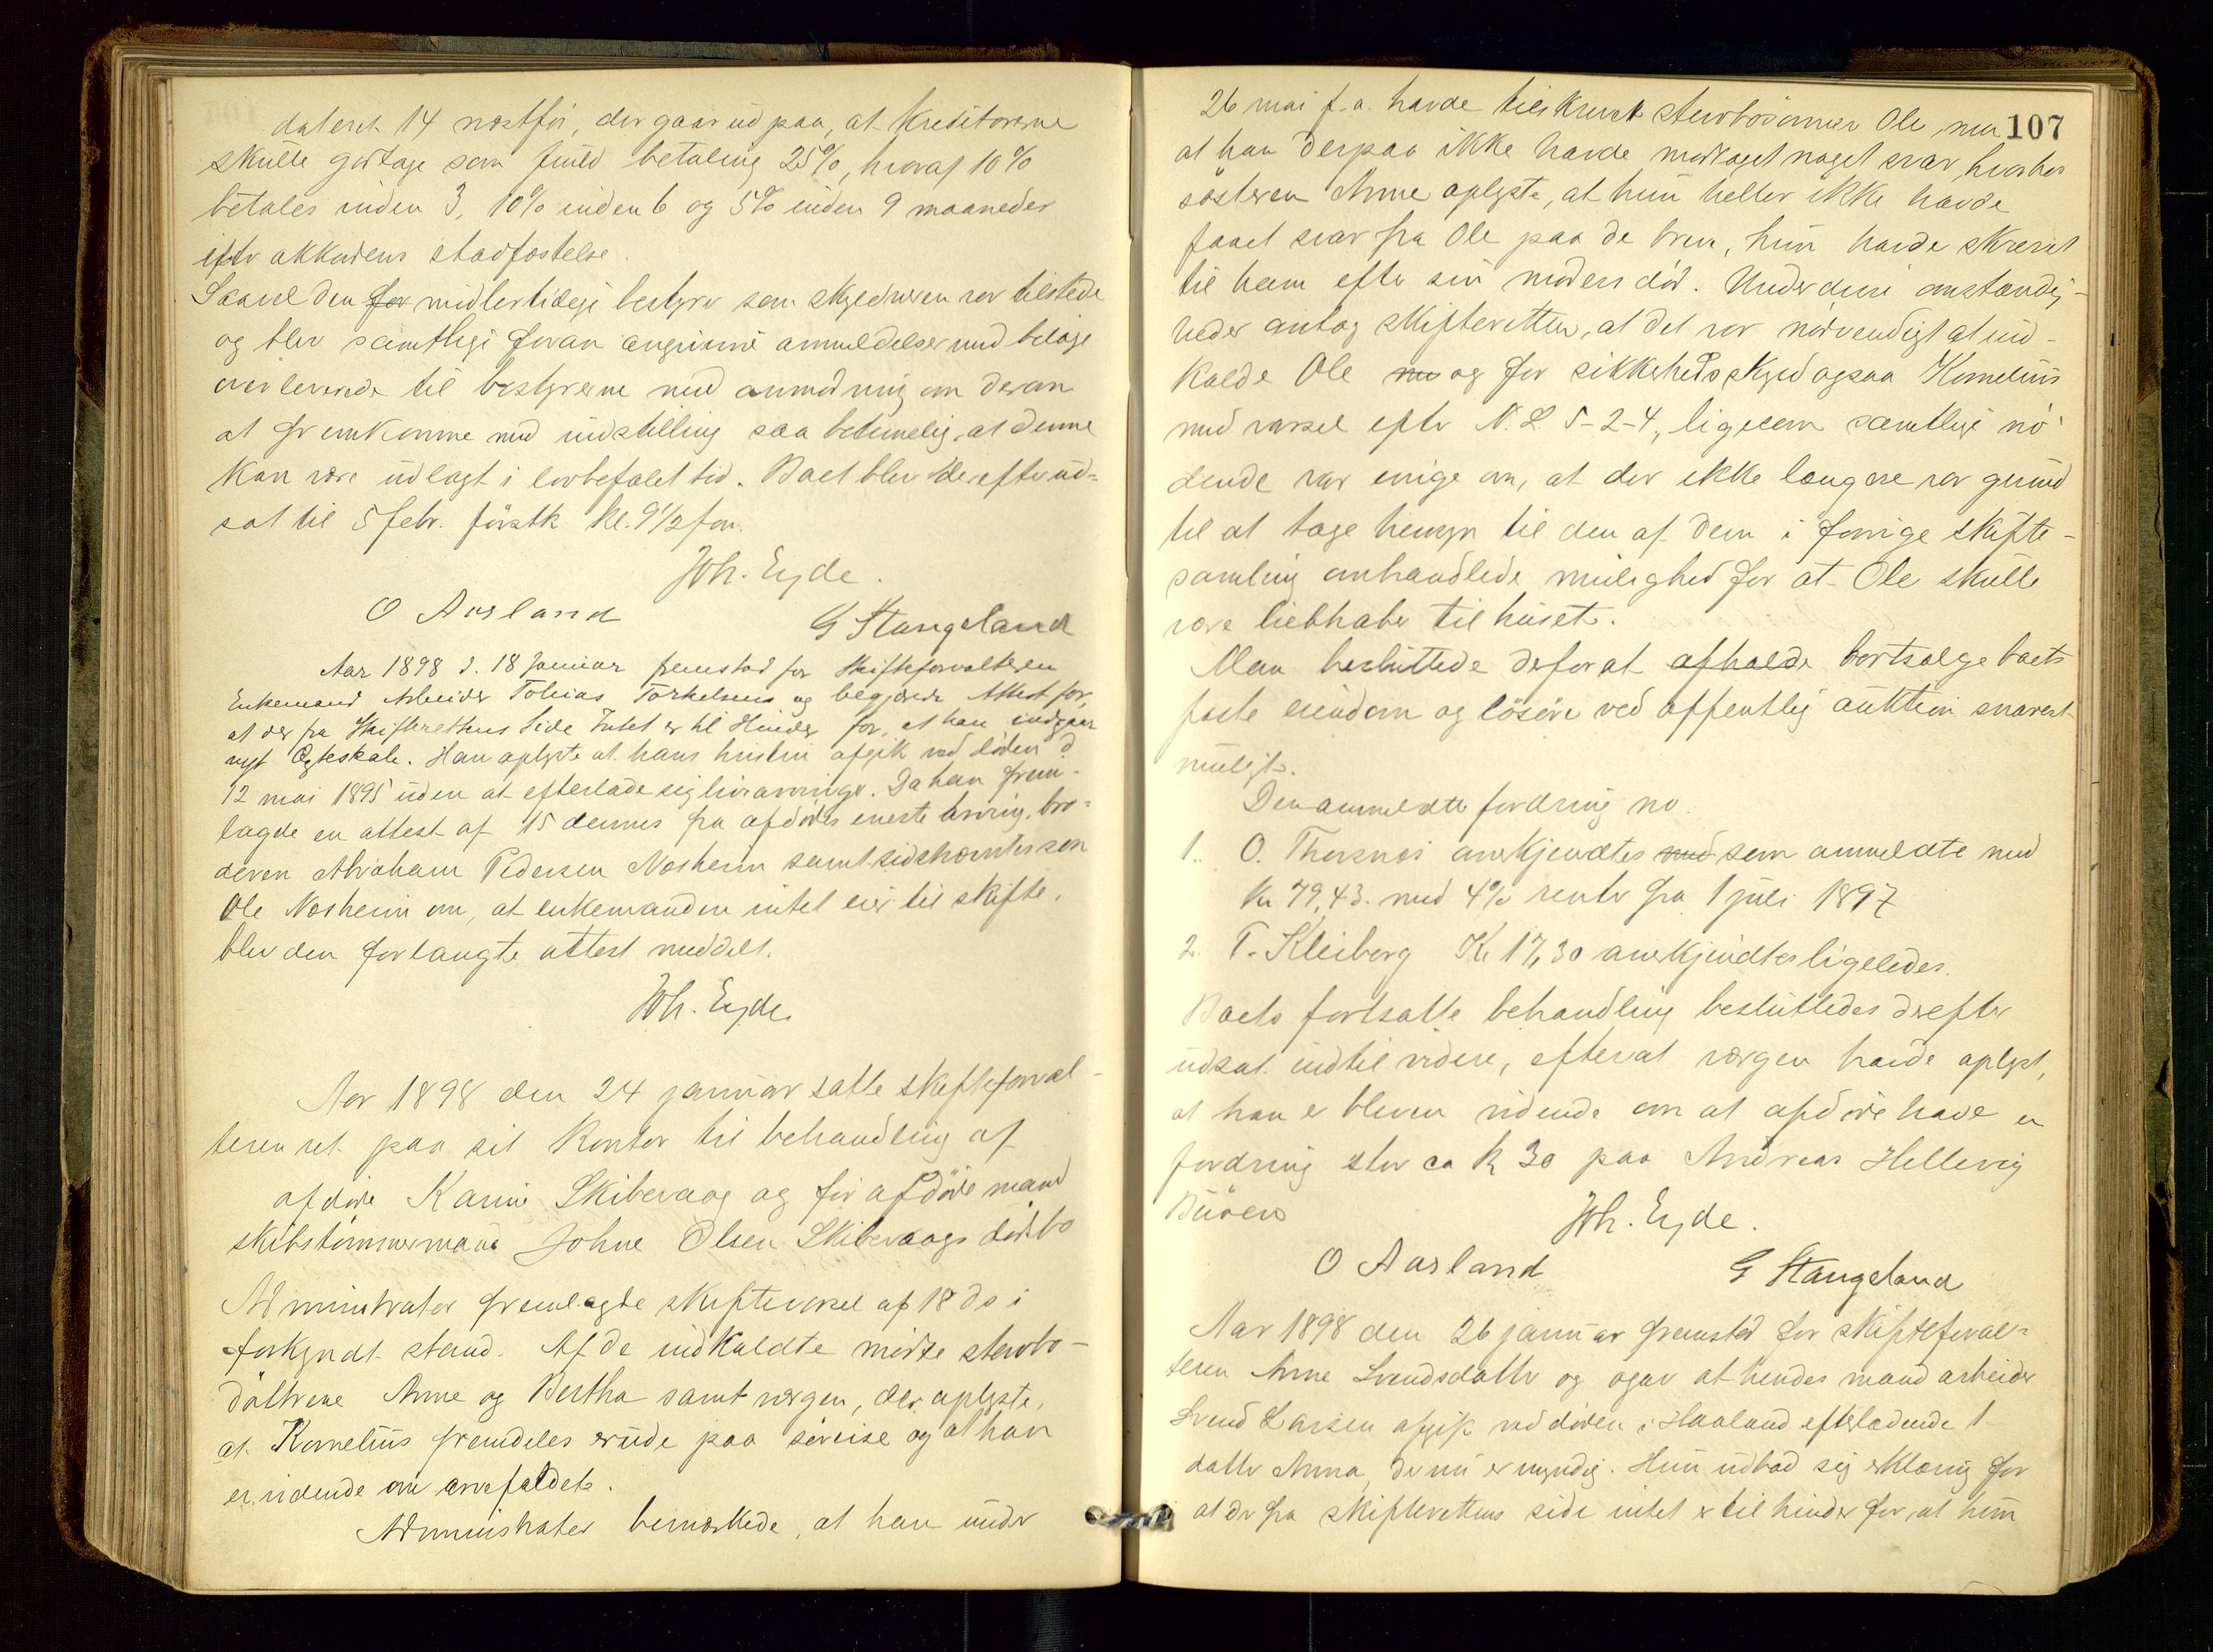 dateret 14 næstfør, der gaar ud paa, at Kreditorerne
skulle godtage som fuld betaling 25%, hvoraf 10%
betales inden 3, 10% inden 6 og 5% inden 9 maaneder
efter akkordens stadfæstelse.
Saavel den for midlertidige bestyrer som skyldneren var tilstede
og blev samtlige foran angivne anmeldelser med bilage
overleverede til bestyrerne med anmodning om deran
at fremkomme med indstilling saa betimelig, at denne
kan være udlagt i lovbefalet tid. Boet blev derefter ud-
sat til 5 febr. førstk kl. 9 1/2 fm.
Wh. Eyde.
O Aarland
G Stangeland
Aar 1898 d. 18 Januar fremstod for Skifteforvalteren
Enkemand Arbeider Tobias Torkelsens og begjærede Attest for,
at der fra Skifterettens Side Intet er til Hinder for, at han indgaar
nyt Ægteskab. Han oplyste at hans hustru afgik ved døden d
12 mai 1895 uden at efterlade sig livsarvinger. Da han frem-
lagde en attest af 15 dennes fra afdødes eneste arving, bro-
deren Abraham Pedersen Nosheim samt sidstnævntes søn
Ole Nosheim om, at enkemanden intet eier til skifte,
blev den forlangte attest meddelt.
Wh. Eyde.
Aar 1898 den 24 januar satte skifteforval-
teren ret paa sit Kontor til behandling af
afdøde Karine Skibevaag og før afdøde mand
skibstømmermand Johne Olsen Skibevaags dødsbo
Administrator fremlagde skiftevarsel af 18 ds i
forkyndt stand. Af de indkaldte mødte stervbo-
døttrene Anne og Bertha samt værgen, der oplyste,
at Kornelius fremdeles er ude paa søreise og at han
er vidende om arvefaldet.
Administrator bemærkede, at han under
107
26 mai f.a. havde tilskrevet stervbosønnen Ole, men
at han derpaa ikke havde modtaget noget svar, hvorhos
søsteren Anne oplyste, at hun heller ikke havde
faaet svar fra Ole paa de breve, hun havde skrevet
til ham efter sin moders død. Under disse omstændig-
heder antog skifteretten, at det var nødvendigt at ind-
kalde Ole nu og for sikkerheds skyld ogsaa Kornelius
med varsel efter N. L. 5-2-4, ligesom samtlige mø-
dende var enige om, at der ikke længere var grund
til at tage hensyn til den af dem i forrige skifte-
samling omhandlede mulighed for at Ole skulle
være liebhaber til huset.
Man besluttede derfor at afholde bortsælge boets
faste eiendom og løsøre ved offentlig auktion snarest
muligt.
Den anmeldte fordring no.
1. O. Thorsnes anerkjendtes med som anmeldte med
Kr 79,43. med 4% rente fra 1 juli 1897
2. T. Kleiberg Kr 17,30 anerkjendtes ligeledes.
Boets fortsatte behandling besluttedes derefter
udsat indtil videre, efterat værgen havde oplyst,
at han er bleven vidende om at afdøde havde en
fordring stor ca Kr 30 paa Andreas Hellevig
Buøen
Wh. Eyde.
O Aarland
G Stangeland
Aar 1898 den 26 januar fremstod for skifteforval-
teren Anne Svendsdatter og opgav at hendes mand arbeider
Svend Larsen afgik ved døden i Haaland efterladende 1
datter Anna, der nu er myndig. Hun udbad sig erklæring for
at der fra skifterettens side intet er til hinder for, at hun